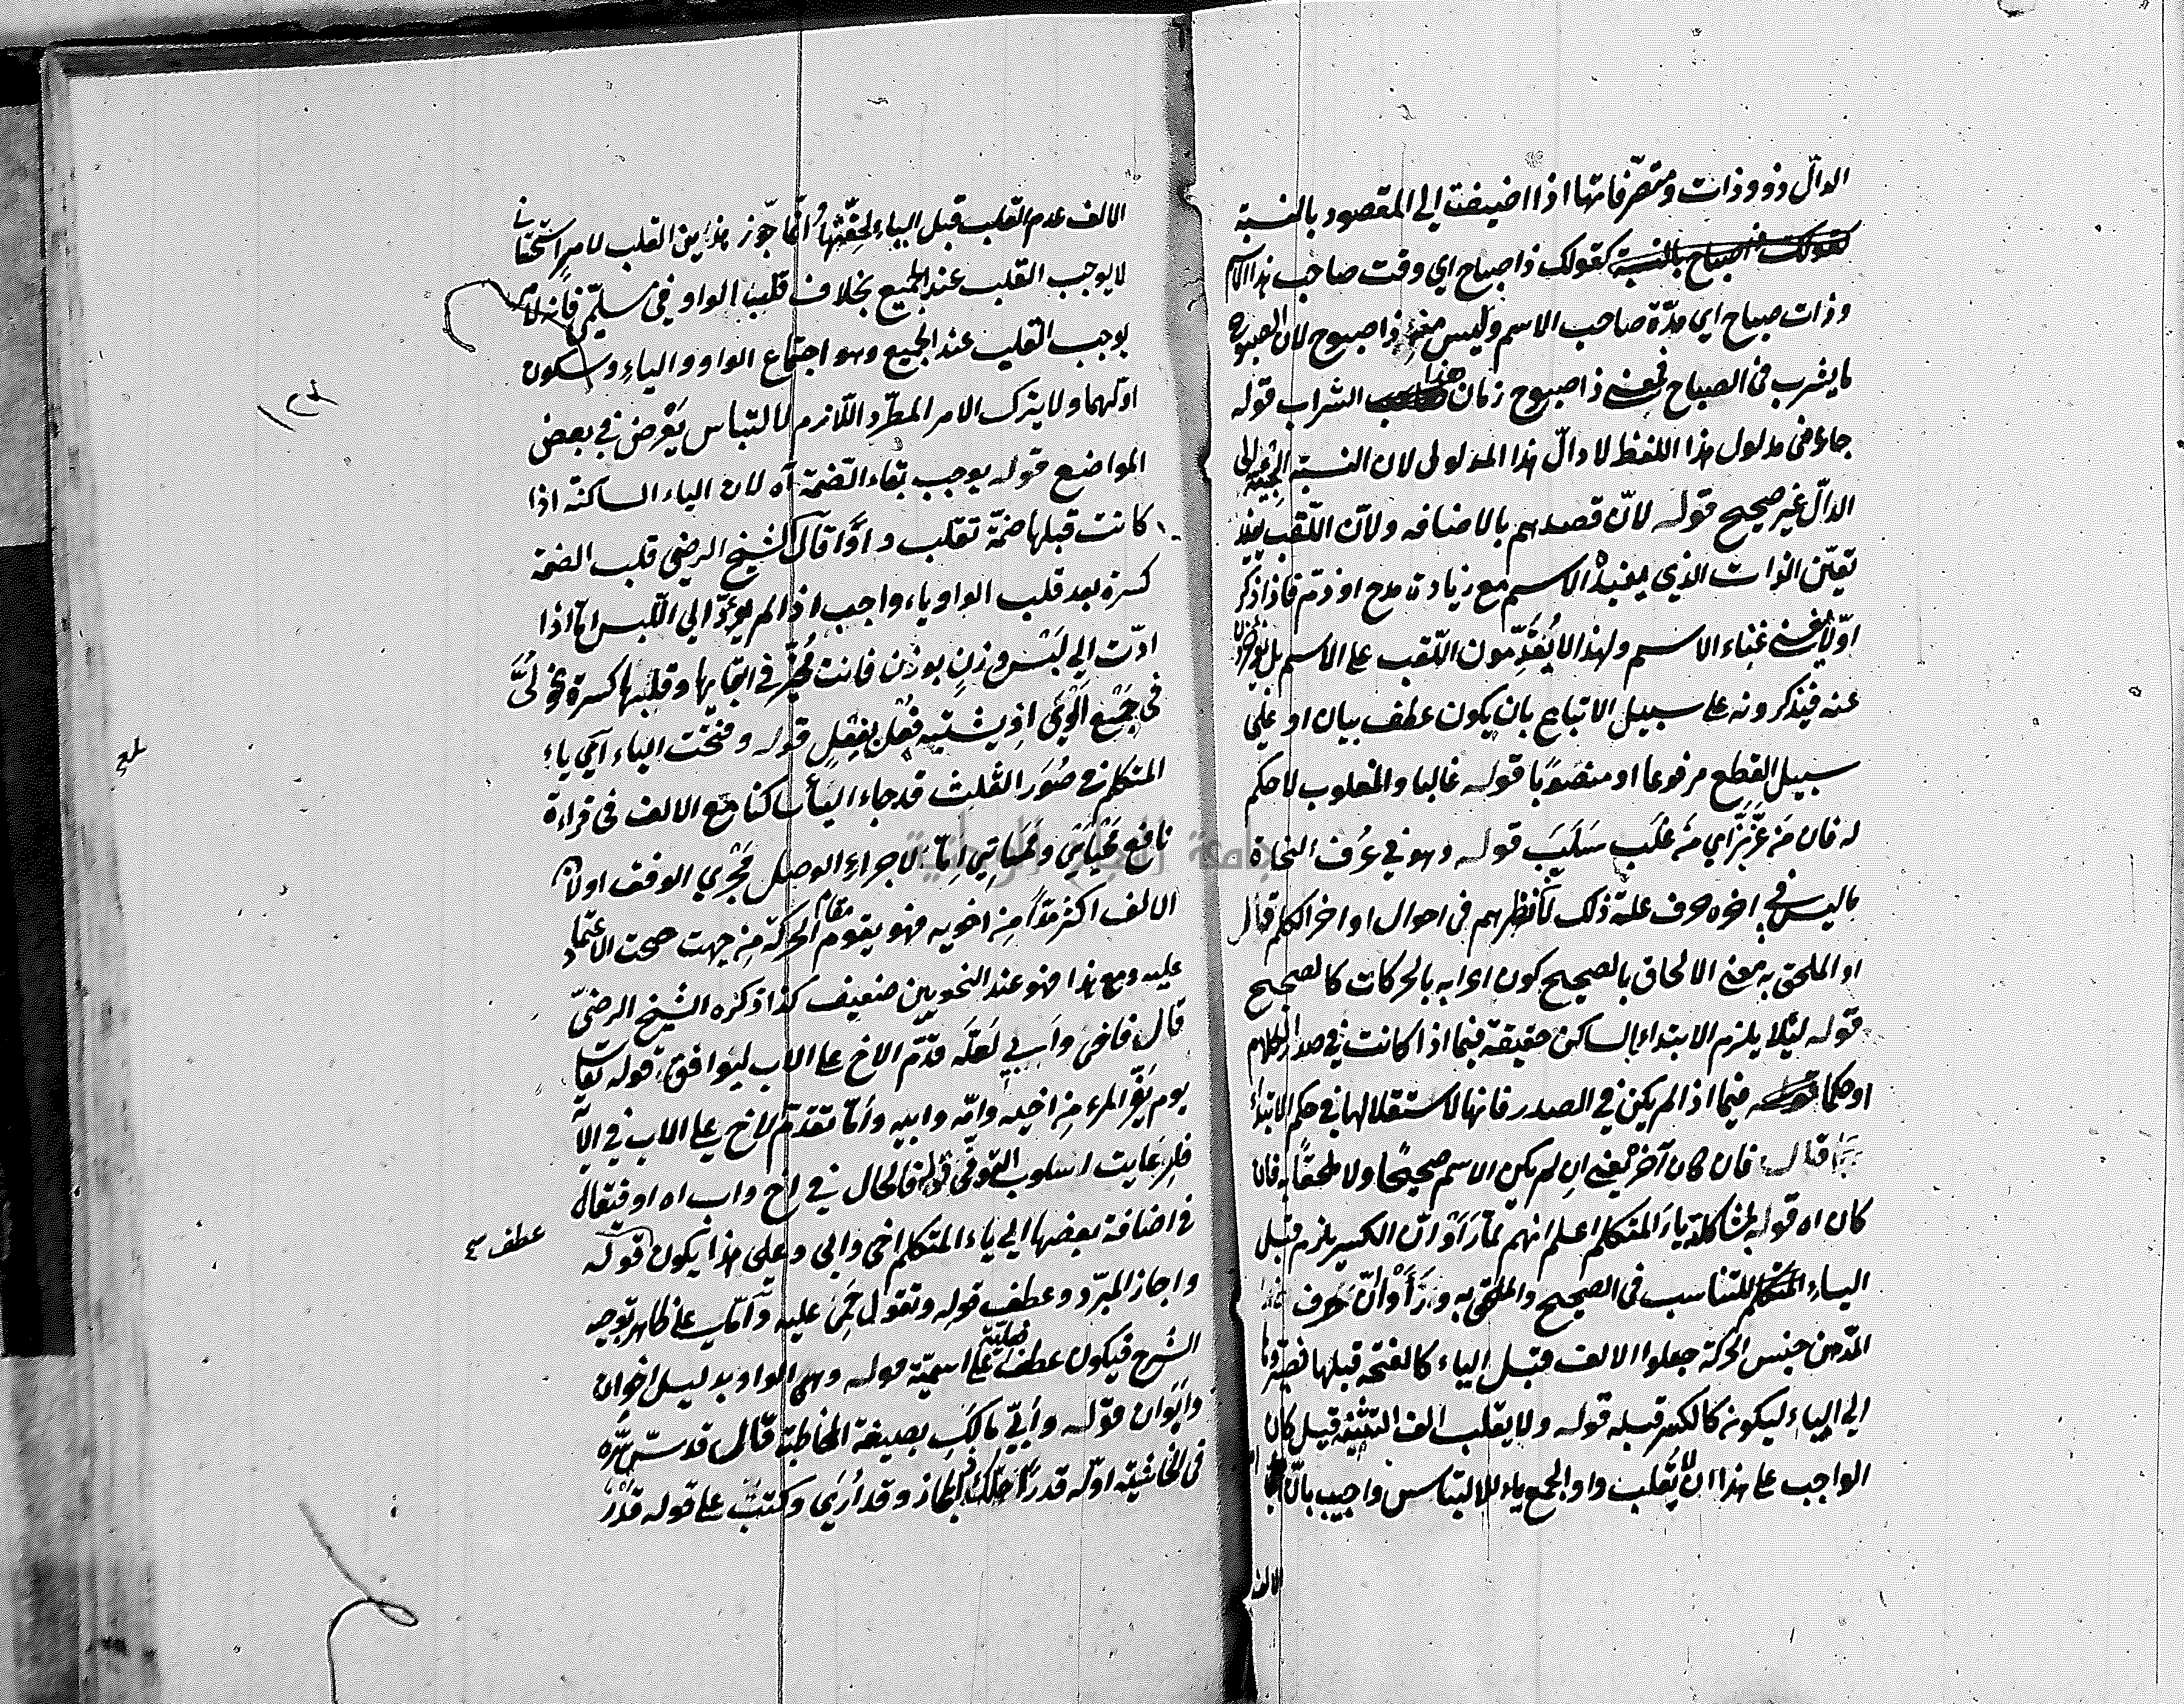 الدالّ ذو وذات ومتصرّفاتها اذا اضيفت الى المقصود بالنسبة
كقولك ذا صباح اي وقت صاحب هذا الاسم
وذات صباح اي مدّة صاحب الاسم وليس منه ذا صبوح لان الصبوح
ما يشرب في الصباح فمعنى ذا صبوح زمان هذا الشراب قوله
جاءني مدلول هذا اللفظ لا دالّ هذا المدلول لان النسبة الى
الدالّ غير صحيح قوله لانّ قصدهم بالاضافه ولانّ اللّقب يفيد
تعيّن الذات الذي يفيده الاسم مع زيادة مدح او ذمّ فاذا ذكر
اوّلا يغنى غناء الاسم ولهذا لا يُقدِّمون اللّقب على الاسم بل يؤخّرون
عنه فيذكرونه على سبيل الاتباع بان يكون عطف بيان او على
سبيل القطع مرفوعا او منصوبًا قوله غالبا والمغلوب لا حكم
له فان مَن عَزَّ بَزَّ اي مَن غلَب سَلَبَ قوله وهو في عُرف النحاة
ما ليس في اخره حرف علة ذلك لأنّ نظرهم في احوال اواخر الكلم قال
او الملحق به معنى الالحاق بالصحيح كون اعرابه بالحركات كالصحيح
قوله لئلا يلزم الابتداء بالساكن حقيقة فيما اذا كانت في صدر الكلام
او حكما فيما اذا لم يكن في الصدر فانها لاستقلالها في حكم الابتداء
قال فان كان آخره يعني ان لم يكن الاسم صحيحًا ولا ملحقًا به فان
كان اه قوله لمشاكلة ياءَ المتكلم اعلم انهم لمّا رَأَوْا انّ الكسر يلزم قبل
الياءِ للتناسب في الصحيح والملحق به ورَأَوْا أنّ حرف
المدّ من جنس الحركة جعلوا الالف قبل الياء كالفتحه قبلها فغيّروها
الى الياء ليكون كالكسر قبله قوله ولا يقلب الف التثنية قيل كان
الواجب على هذا ان لا يُقلب واو الجمع ياء للالتباس واجيب بانّ
الالف
الالف عدم القلب قبل الياء لخفّتها وانّما جوّز هذيل القلب لامرٍ استحسانى
لا يوجب القلب عند الجميع بخلاف قلب الواو في مسلميّ فانه لأمر
يوجب القلب عند الجميع وهو اجتماع الواو والياءِ وسكون
اوّلهما ولا يترك الامر المطّرد اللّازم لالتباس يَعْرِض في بعض
المواضع قوله يوجب بقاء الضّمة آه لان الياء الساكنة اذا
كانت قبلها ضمّة تقلب واوًا قال الشيخ الرضي قلب الضمة
كسرة بعد قلب الواو ياء واجب اذا لم يؤدّ الى اللّبس امّا اذا
ادّت الى لَبْس وزنٍ بوزن فانت مُخيَّر في ابقايها وقلبها كسرة نحو لُىّ
في جَمْع اَلْوَى اذ يشتبه فُعْل بفِعْلٍ قوله وفتحت الياء اي ياء
المتكلم في صُوَر الثلث قد جاء الياء ساكنا مع الالف في قراءة
نافع مَحْيَايْ ومَمَاتِي امّا لاجراءِ الوصل مَجْرى الوقف او لانّ
الالف اكثر مدًّا مِن اخويه فهو يقوم مقام الحركة مِن جهت صحت الاعتماد
عليه ومع هذا فهو عند النحويين ضعيف كذا ذكره الشيخ الرضيّ
قال فاخى وابي لعلّه قدّم الاخ على الاب ليوافق قوله تعالى
يوم يَفِرّ المرء مِن اخيه وامّه وابيه وامّا تقدّم الاخ على الاب في الآية
فلِرعايت اسلوب الترقّي قوله فالحال في اخ واب اه او فيقال
في اضافة بعضها الى ياء المتكلم اخي وابى وعلى هذا يكون قوله
واجاز المبرّد وعطف قوله وتقول حَمِى عليه وامّا على ظاهر توجيه
الشرح فيكون عطف فعليّة على اسميّة قوله وهى الواو بدليل اخوان
وابَوَان قوله وأبيّ مالَكِ بصيغة المخاطبة قال قدس سرّه
في الحاشية اوّله قدرٌ احلّك ذا المجاز وقد أرَى وكتبت على قوله قدْرٌ
١٢٤
عطف